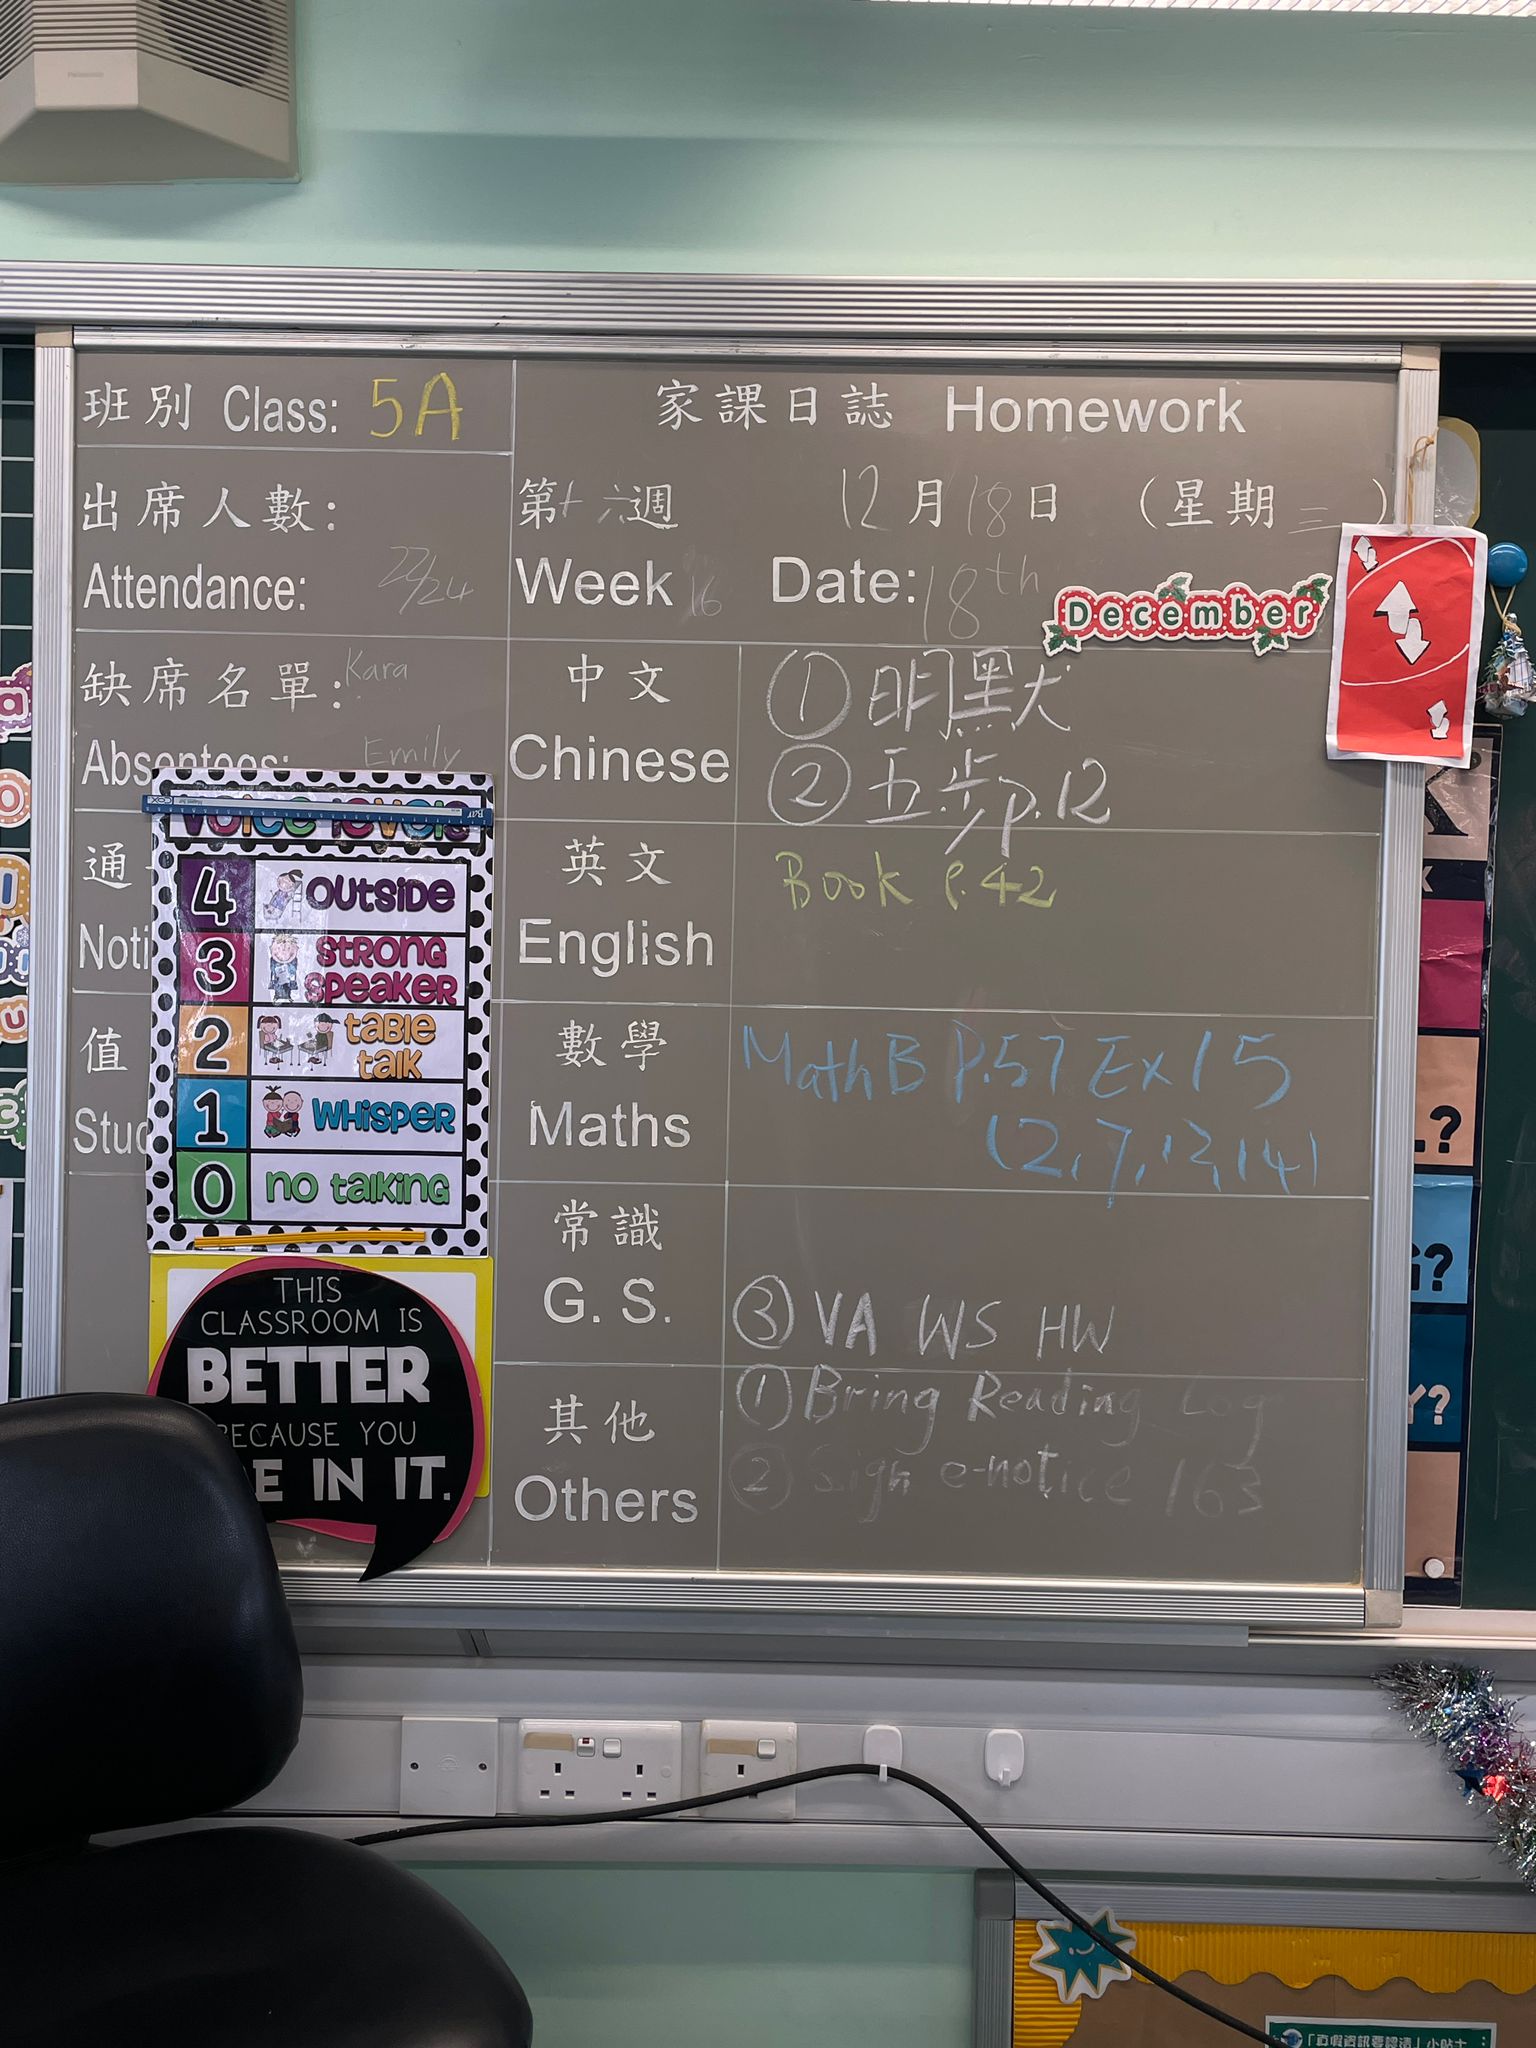 Panasonic
班別 Class: 5A
家課日誌 Homework
出席人數:
Attendance: 22/24
第十六週 12月18日 (星期三)
Week 16 Date: 18th December
缺席名單: Kara
Absentees: Emily
中文
Chinese
① 明默
② 五步 p.12
通
Noti
英文
English
Book P.42
值
Stud
數學
Maths
Math B P.57 Ex 15
(2, 7, 12, 14)
常識
G. S.
③ VA WS HW
其他
Others
① Bring Reading Log
② Sign e-notice 163
voice levels
4 outside
3 strong speaker
2 table talk
1 whisper
0 no talking
THIS
CLASSROOM IS
BETTER
BECAUSE YOU
E IN IT.
K
L?
G?
Y?
「真假資訊要認清」小貼士